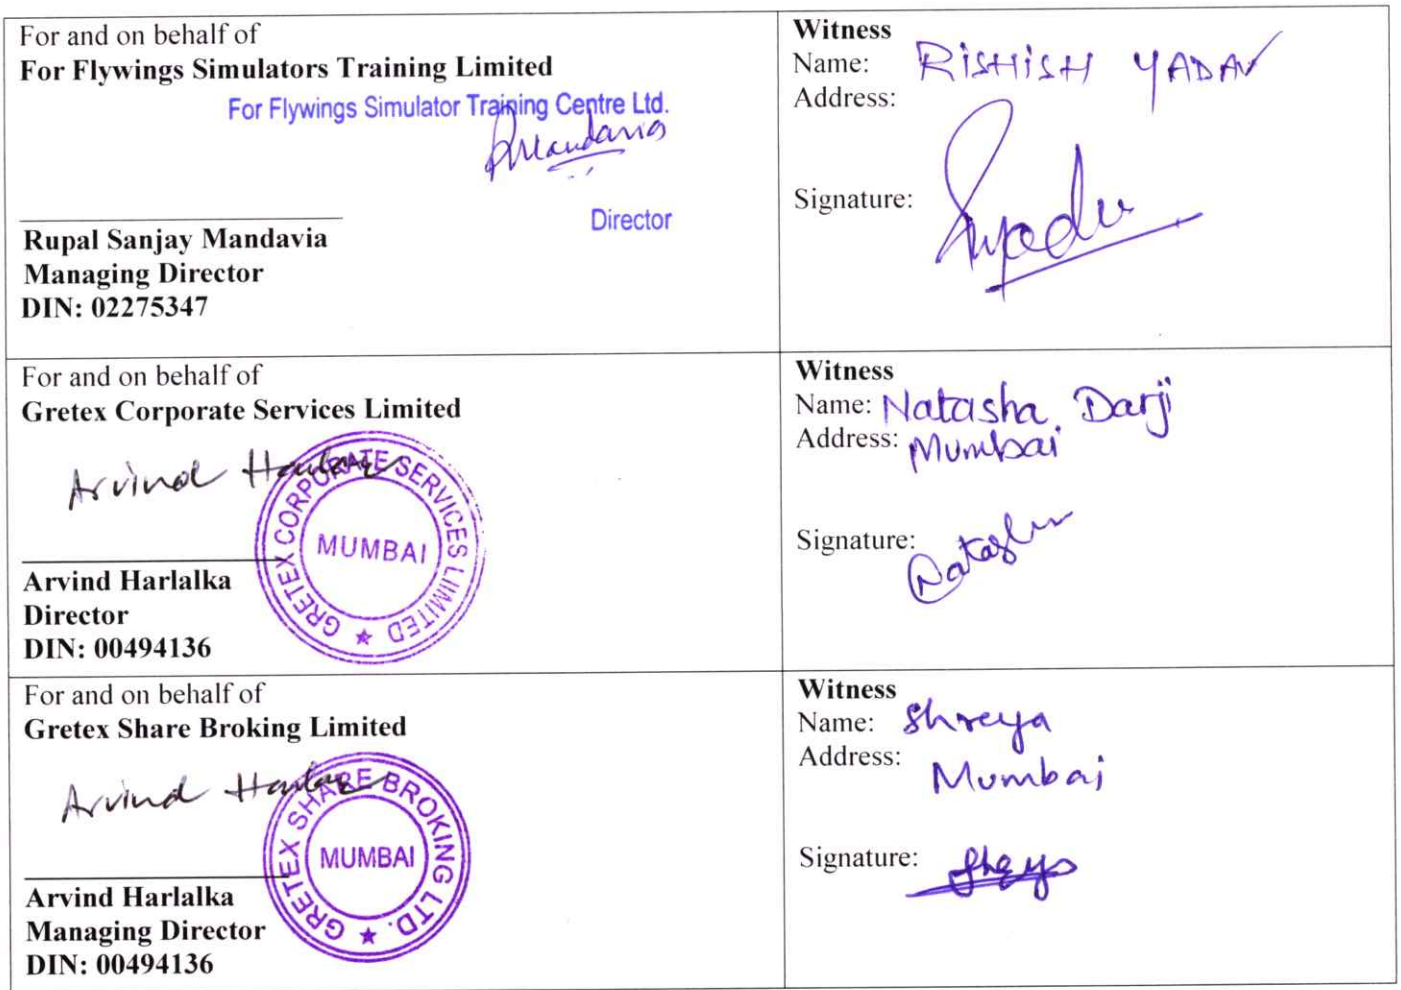 For and on behalf of
For Flywings Simulators Training Limited
For Flywings Simulator Training Centre Ltd.
Director
Rupal Sanjay Mandavia
Managing Director
DIN: 02275347
Witness
Name: RiSHiSH YADAV
Address:
Signature:
For and on behalf of
Gretex Corporate Services Limited
Arvind Harlalka
GRETEX CORPORATE SERVICES LIMITED
MUMBAI
Arvind Harlalka
Director
DIN: 00494136
Witness
Name: Natasha Darji
Address: Mumbai
Signature: Natasha
For and on behalf of
Gretex Share Broking Limited
Arvind Harlalka
GRETEX SHARE BROKING LTD.
MUMBAI
Arvind Harlalka
Managing Director
DIN: 00494136
Witness
Name: Shreya
Address: Mumbai
Signature: